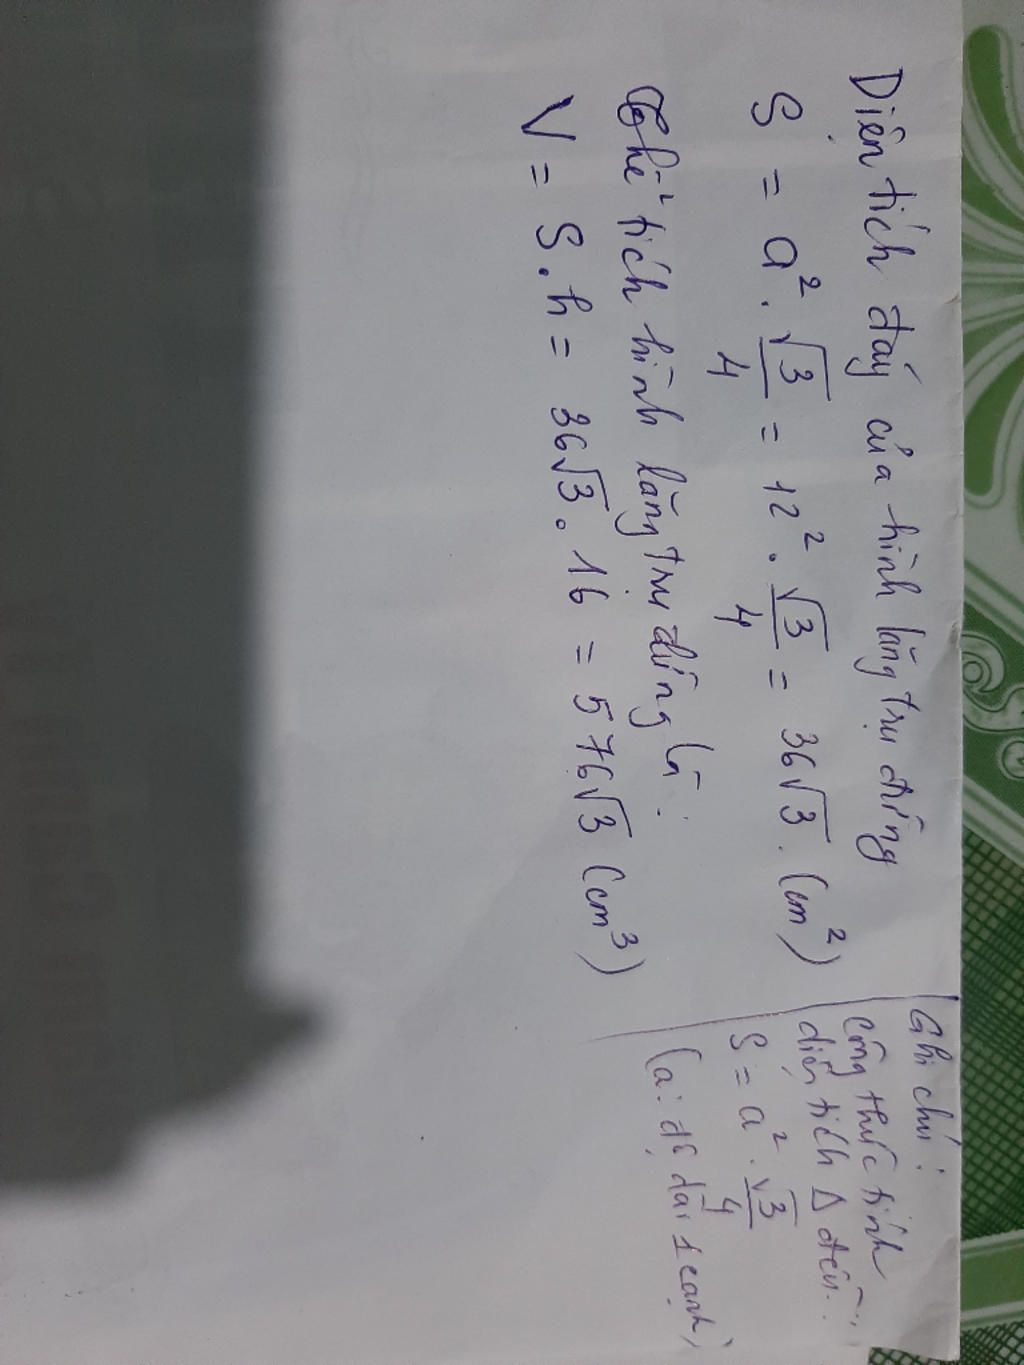 Diện tích đáy của hình lăng trụ đứng
S = a² . √3/4 = 12² . √3/4 = 36√3 (cm²)
Thể tích hình lăng trụ đứng là:
V = S . h = 36√3 . 16 = 576√3 (cm³)
Ghi chú:
Công thức tính
diện tích Δ đều:
S = a² . √3/4
(a: độ dài 1 cạnh)